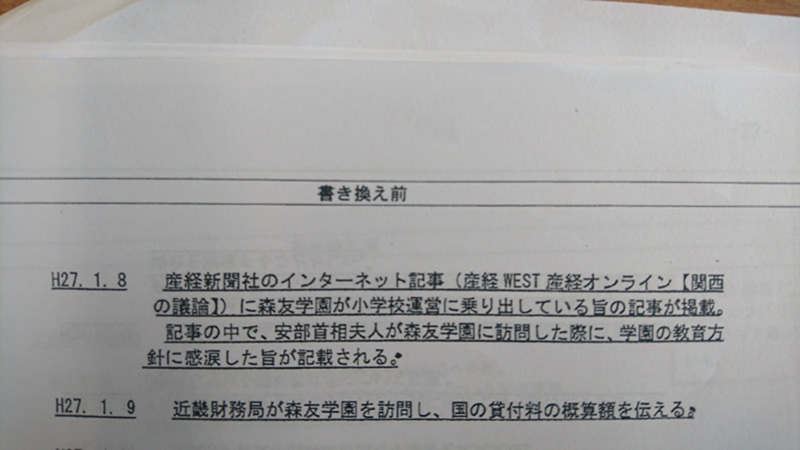 書き換え前
H27. 1. 8 産経新聞社のインターネット記事（産経WEST 産経オンライン【関西
の議論】）に森友学園が小学校運営に乗り出している旨の記事が掲載。
記事の中で、安部首相夫人が森友学園に訪問した際に、学園の教育方
針に感涙した旨が記載される。
H27. 1. 9 近畿財務局が森友学園を訪問し、国の貸付料の概算額を伝える。